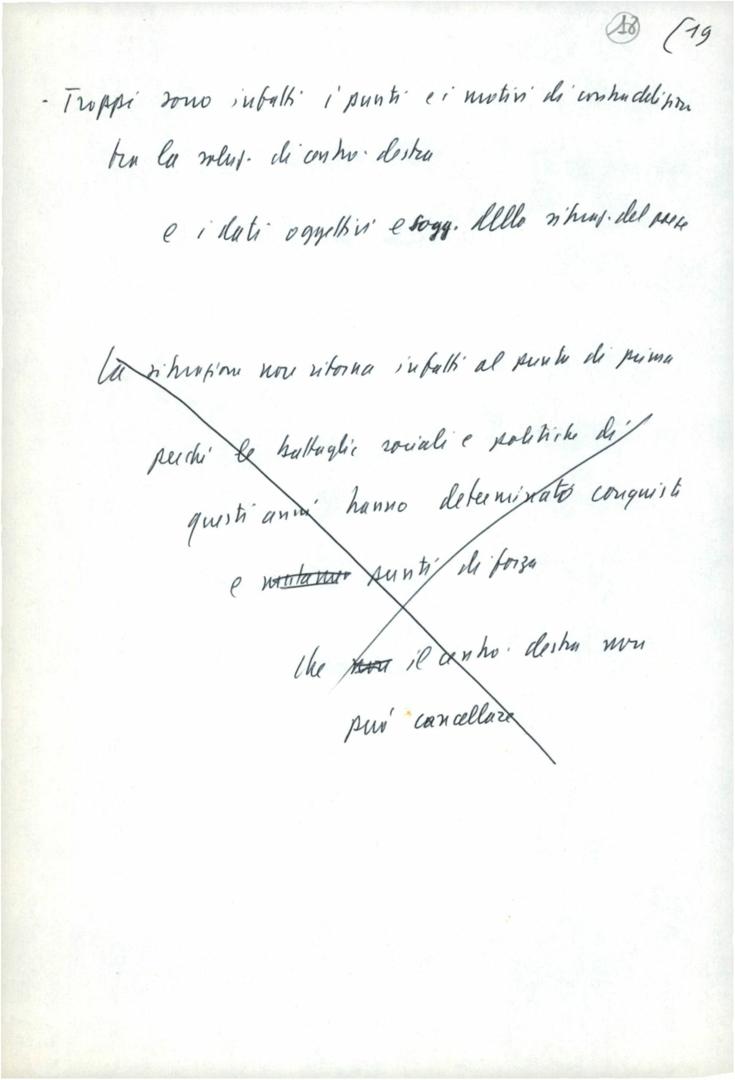 18 (19
- Troppi sono infatti i punti e i motivi di contraddizione
tra la soluz. di centro-destra
e i dati oggettivi e sogg. della situaz. del paese
La situazione non ritorna infatti al punto di prima
perché le battaglie sociali e politiche di
questi anni hanno determinato conquiste
e punti di forza
che non il centro-destra non
può cancellare